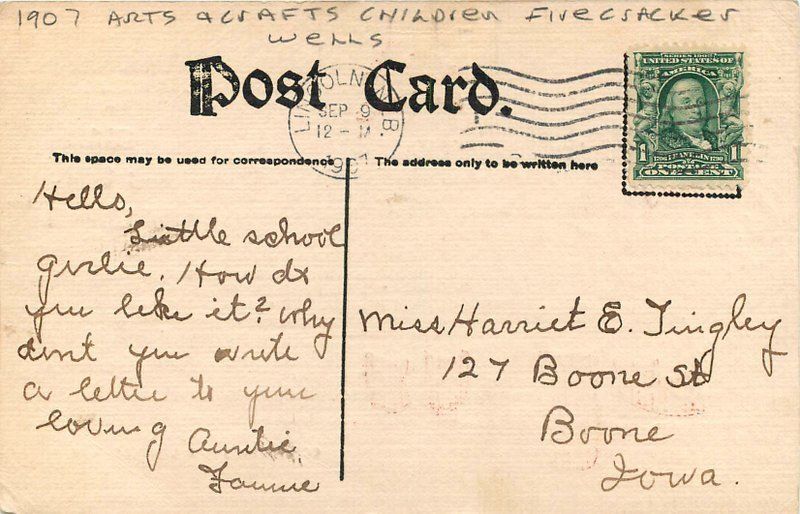 1907 ARTS & CRAFTS CHILDREN FIRECRACKER
WELLS
Post Card.
LINCOLN, NEB
SEP 9
12 - M.
1907
SERIES 1902
UNITED STATES OF
AMERICA
1 1706 FRANKLIN 1790 1
POSTAGE
ONE CENT
This space may be used for correspondence
The address only to be written here
Hello,
Little school
girlie. How do
you like it? Why
dont you write
a letter to your
loving Auntie
Fannie
Miss Harriet E. Tingley
127 Boone St
Boone
Iowa.